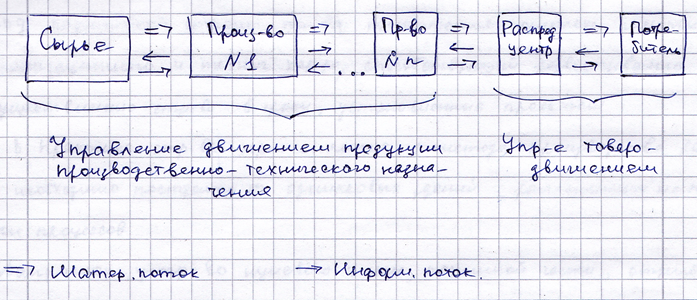 Сырье
⇒
←
→
Произ-во
N1
⇒
→
← ...
Пр-во
N n
⇒
←
→
Распред.
центр
⇒
←
→
Потре-
битель
Управление движением продукции
производственно-технического назна-
чения
Упр-е товаро-
движением
⇒ Матер. поток
→ Информ. поток.